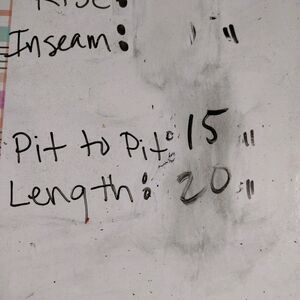 Rise:
Inseam: "
Pit to Pit: 15 "
Length: 20 "